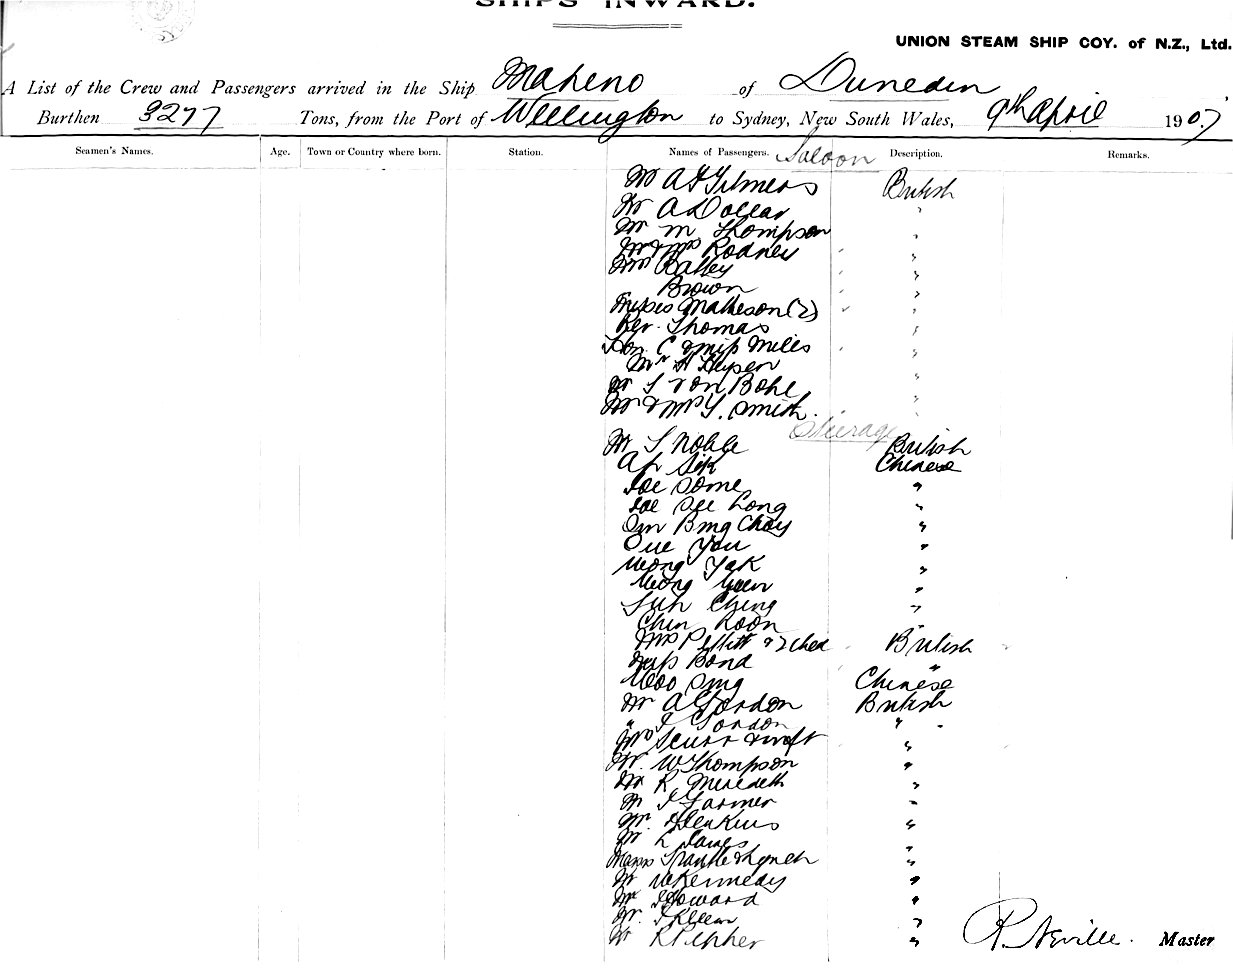 SHIPS INWARD.
UNION STEAM SHIP COY. of N.Z., Ltd.
A List of the Crew and Passengers arrived in the Ship Maheno of Dunedin
Burthen 3277 Tons, from the Port of Wellington to Sydney, New South Wales, 9th April 1907
Seamen's Names. Age. Town or Country where born. Station. Names of Passengers. Saloon Description. Remarks.
Mr A F Gilmers British
Mr A Dollar "
Mr M Thompson "
Mr & Mrs Rodney "
Mrs Batley "
Brown "
Misses Matheson (2) "
Rev. Thomas "
Hon. C & Miss Mills "
Mr H "
Mr von Bohl "
Mr & Mrs Y. Smith "
Steerage
Mr S Noble British
Ah Sik Chinese
Joe Some "
Joe See Long "
Om Bing Choy "
Que You "
Wong Yak "
Wong Yuen "
Suh Ching "
Chin Koon "
Mrs & 2 Chd British
Miss Bond "
Woo Sing Chinese
Mr A Gordon British
" Gordon "
Mrs Scurr & inft "
Mr. W Thompson "
Mr R Meredith "
Mr J Farmer "
Mr. Jenkins "
Mr L James "
Messrs & Lynch "
Mr W Kennedy "
Mr Howard "
Mr. "
Mr R "
R Neville. Master